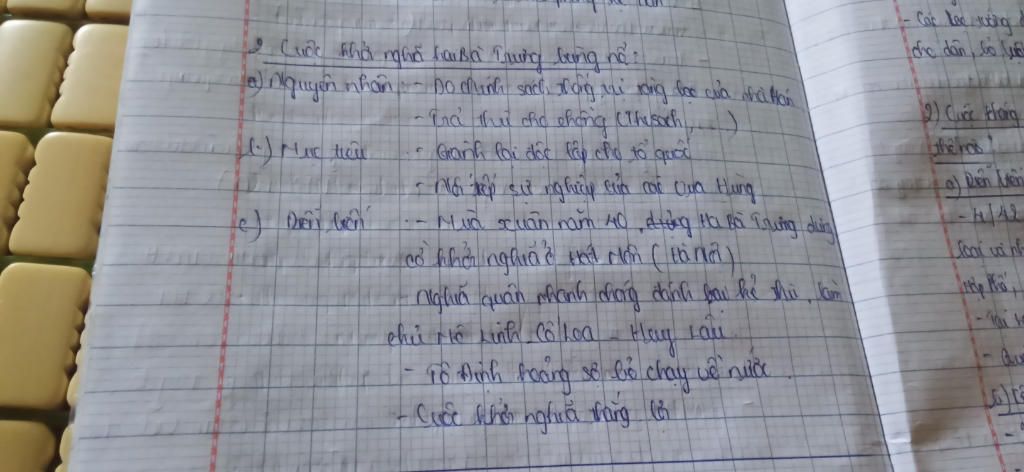 2 Cuộc khởi nghĩa Hai Bà Trưng bùng nổ:
a) Nguyên nhân - Do chính sách thống trị tàng bạc của nhà Hán
- Trả thù cho chồng (Thi sách, ....)
b) Mục tiêu - Giành lại độc lập cho tổ quốc
- Nối tiếp sự nghiệp của các Vua Hùng
c) Diễn biến - Mùa xuân năm 40, Hai Bà Trưng dựng
cờ khởi nghĩa ở Hát Môn (Hà Nội)
- Nghĩa quân nhanh chóng đánh bại kẻ thù, làm
chủ Mê Linh - Cổ Loa - Luy Lâu
- Tô Định hoảng sợ bỏ chạy về nước.
- Cuộc khởi nghĩa thắng lợi
- Các
cho dân,
2) Cuộc kháng
a) Diễn biến
- 4/42